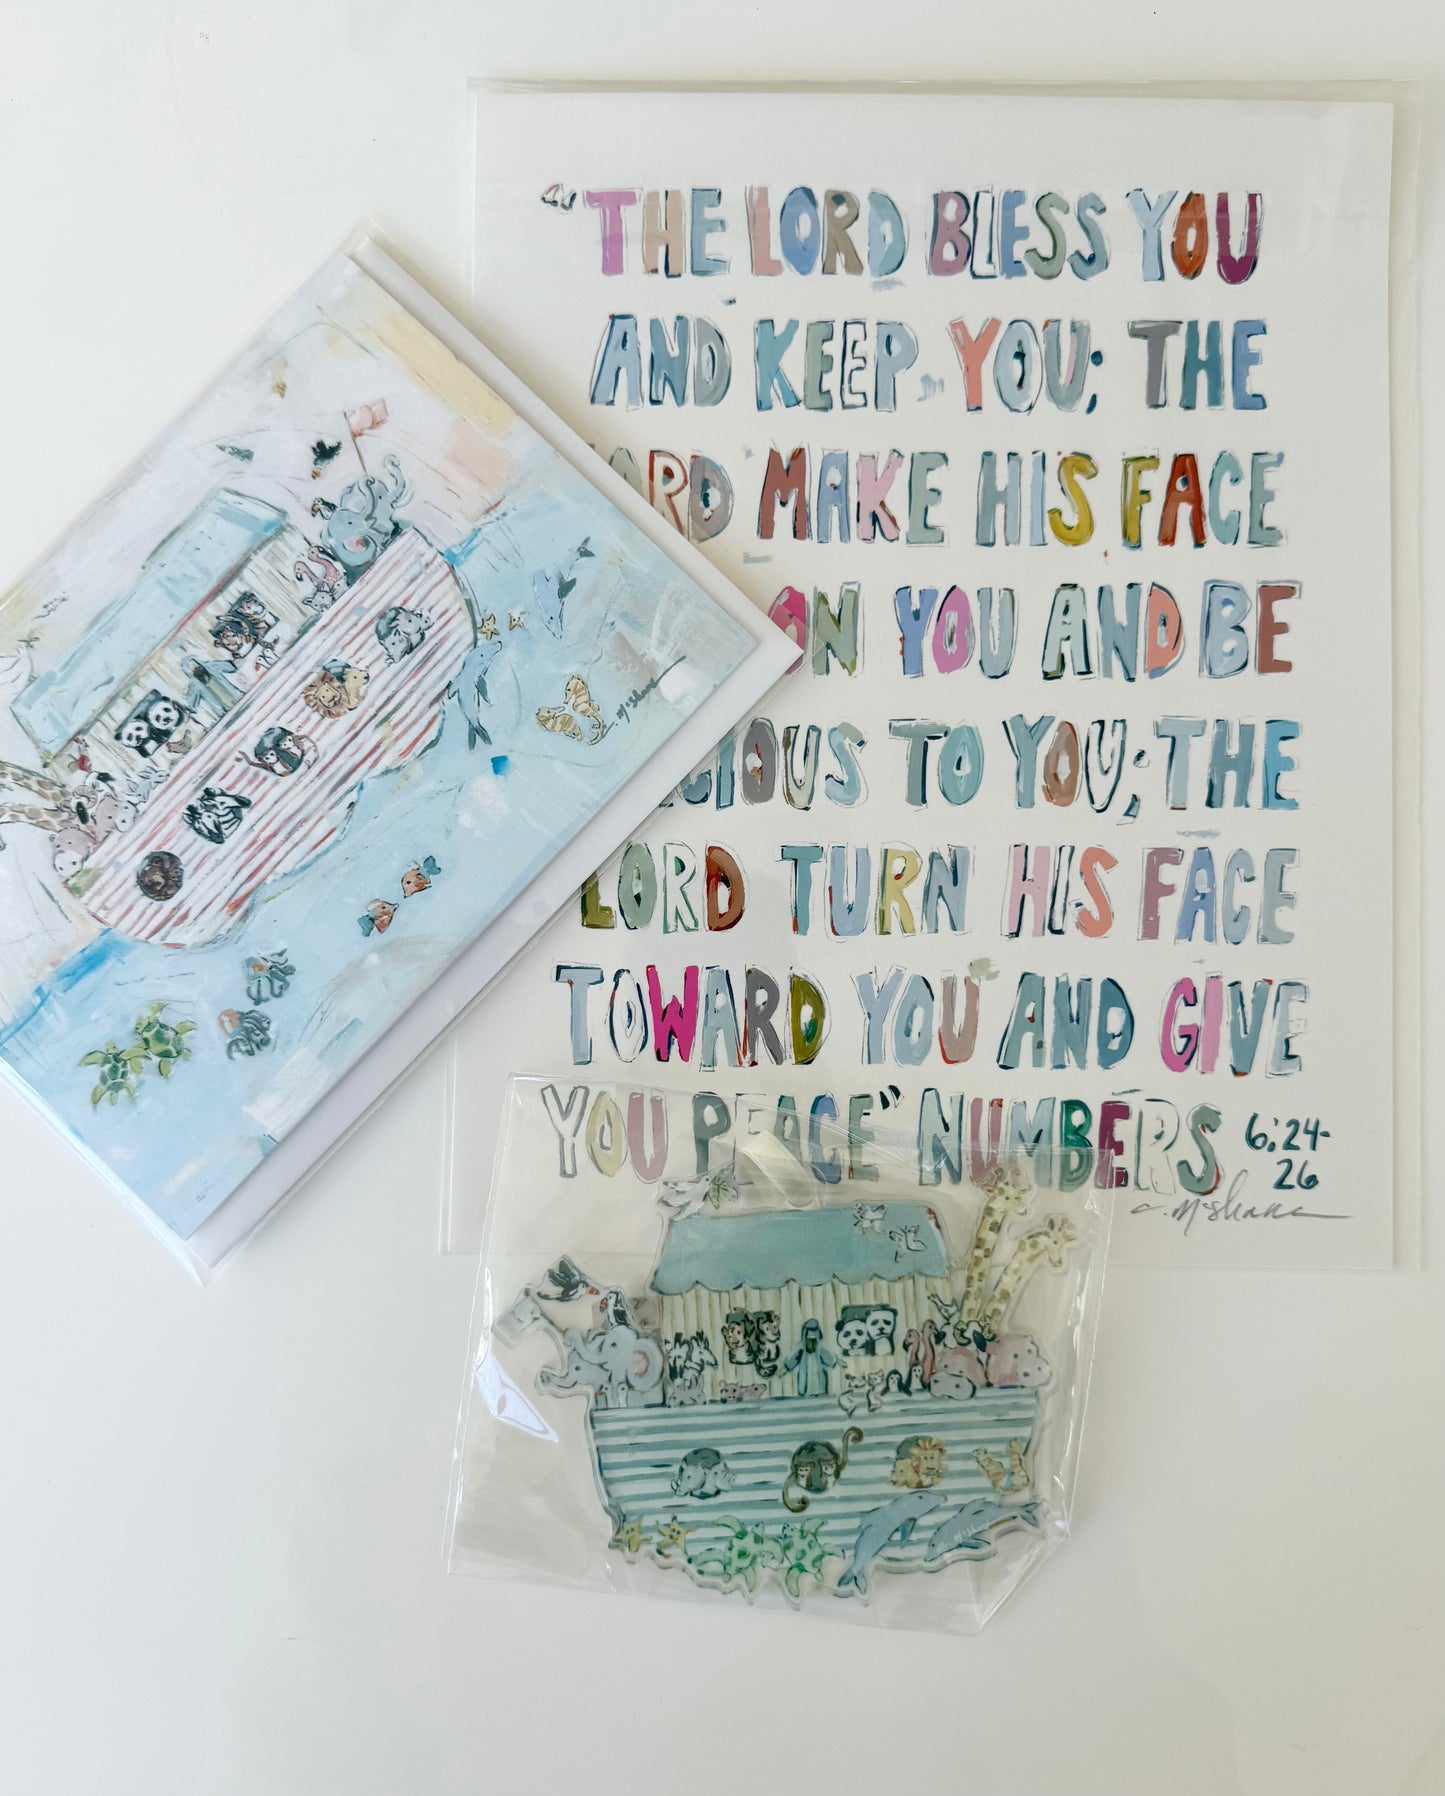 "THE LORD BLESS YOU
AND KEEP YOU; THE
LORD MAKE HIS FACE
ON YOU AND BE
CIOUS TO YOU; THE
LORD TURN HIS FACE
TOWARD YOU AND GIVE
YOU PEACE" NUMBERS 6:24-
26
C. McShane
C. McShane